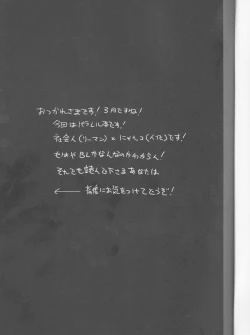 おつかれさまです！3月ですね！
今回はパラレル本です！
社会人(リーマン)×にゃんコ(人化)です！
もはやBLかなんなのかわからん！
それでも読んで下さるあなたは
← 背後にお気をつけてどうぞ！